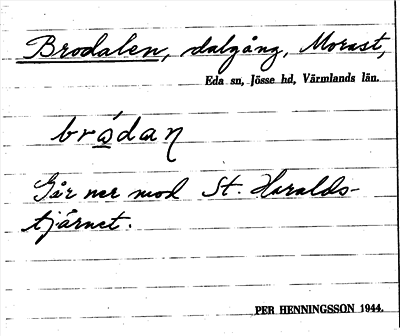 Brodalen, dalgång, Morast,
Eda sn, Jösse hd, Värmlands län.
bródaƞ
Går ner mod St. Haralds-
tjärnet.
PER HENNINGSSON 1944.